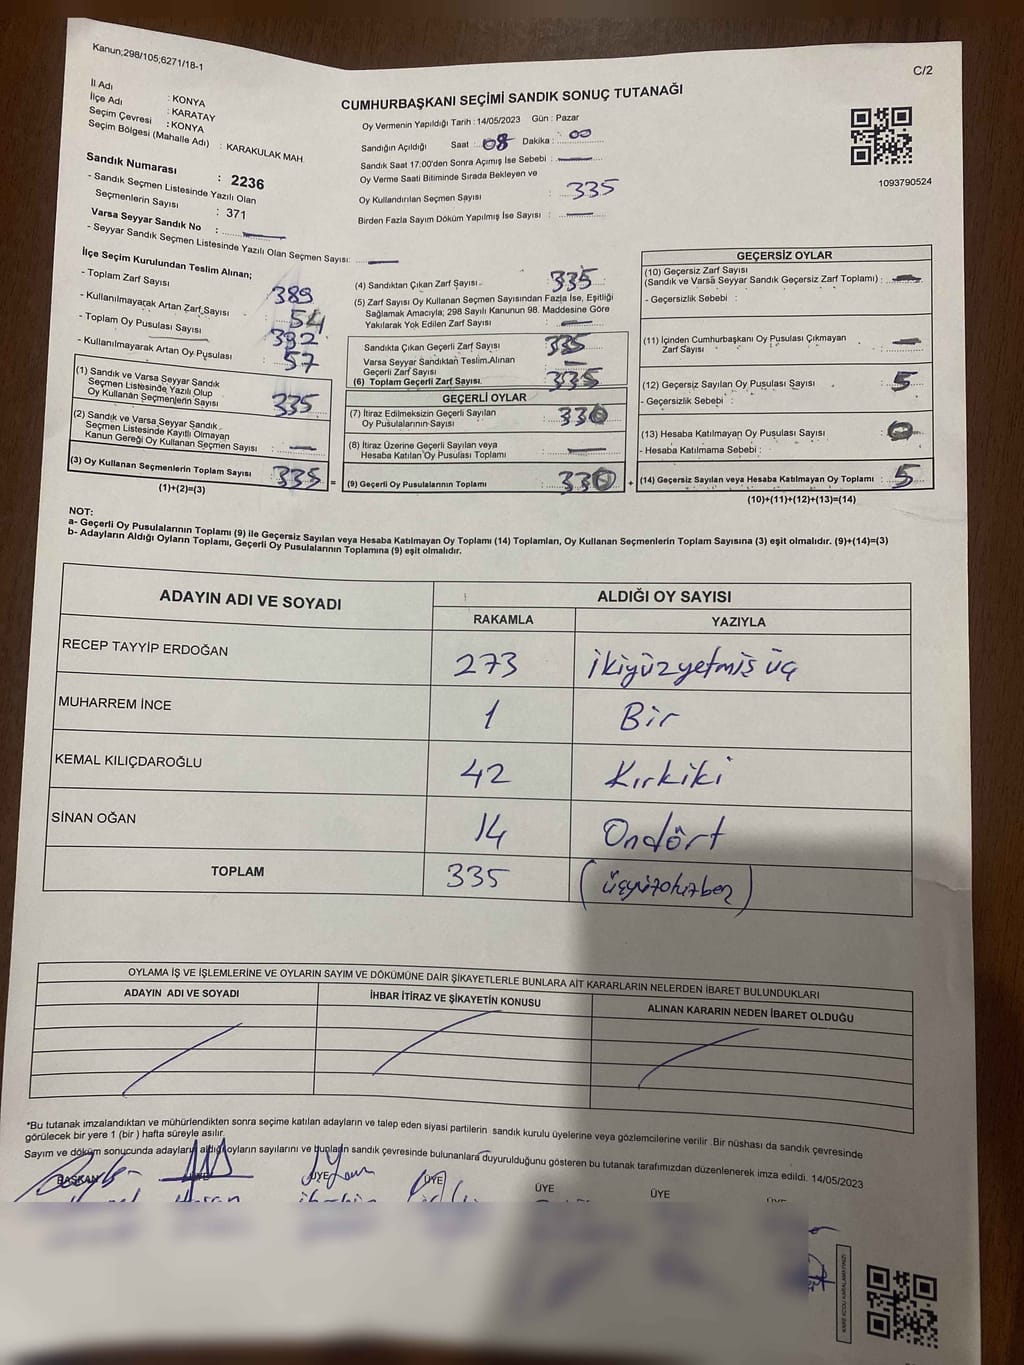 Kanun;298/105;6271/18-1
C/2
İl Adı : KONYA
İlçe Adı : KARATAY
Seçim Çevresi : KONYA
Seçim Bölgesi (Mahalle Adı) : KARAKULAK MAH.
Sandık Numarası : 2236
- Sandık Seçmen Listesinde Yazılı Olan
Seçmenlerin Sayısı : 371
Varsa Seyyar Sandık No :
- Seyyar Sandık Seçmen Listesinde Yazılı Olan Seçmen Sayısı:
CUMHURBAŞKANI SEÇİMİ SANDIK SONUÇ TUTANAĞI
Oy Vermenin Yapıldığı Tarih : 14/05/2023 Gün : Pazar
Sandığın Açıldığı Saat : 08 Dakika : 00
Sandık Saat 17:00'den Sonra Açımış İse Sebebi :
Oy Verme Saati Bitiminde Sırada Bekleyen ve
Oy Kullandırılan Seçmen Sayısı : 335
Birden Fazla Sayım Döküm Yapılmış İse Sayısı :
1093790524
İlçe Seçim Kurulundan Teslim Alınan;
- Toplam Zarf Sayısı : 389
- Kullanılmayarak Artan Zarf Sayısı : 54
- Toplam Oy Pusulası Sayısı : 392
- Kullanılmayarak Artan Oy Pusulası : 57
(1) Sandık ve Varsa Seyyar Sandık
Seçmen Listesinde Yazılı Olup
Oy Kullanan Seçmenlerin Sayısı : 335
(2) Sandık ve Varsa Seyyar Sandık
Seçmen Listesinde Kayıtlı Olmayan
Kanun Gereği Oy Kullanan Seçmen Sayısı :
(3) Oy Kullanan Seçmenlerin Toplam Sayısı : 335 =
(1)+(2)=(3)
(4) Sandıktan Çıkan Zarf Sayısı : 335
(5) Zarf Sayısı Oy Kullanan Seçmen Sayısından Fazla İse, Eşitliği
Sağlamak Amacıyla; 298 Sayılı Kanunun 98. Maddesine Göre
Yakılarak Yok Edilen Zarf Sayısı :
Sandıkta Çıkan Geçerli Zarf Sayısı : 335
Varsa Seyyar Sandıktan Teslim Alınan
Geçerli Zarf Sayısı :
(6) Toplam Geçerli Zarf Sayısı. : 335
GEÇERLİ OYLAR
(7) İtiraz Edilmeksizin Geçerli Sayılan
Oy Pusulalarının Sayısı : 330
(8) İtiraz Üzerine Geçerli Sayılan veya
Hesaba Katılan Oy Pusulası Toplamı :
(9) Geçerli Oy Pusulalarının Toplamı : 330 +
GEÇERSİZ OYLAR
(10) Geçersiz Zarf Sayısı
(Sandık ve Varsa Seyyar Sandık Geçersiz Zarf Toplamı) :
- Geçersizlik Sebebi :
(11) İçinden Cumhurbaşkanı Oy Pusulası Çıkmayan
Zarf Sayısı :
(12) Geçersiz Sayılan Oy Pusulası Sayısı : 5
- Geçersizlik Sebebi :
(13) Hesaba Katılmayan Oy Pusulası Sayısı : 0
- Hesaba Katılmama Sebebi :
(14) Geçersiz Sayılan veya Hesaba Katılmayan Oy Toplamı : 5
(10)+(11)+(12)+(13)=(14)
NOT:
a- Geçerli Oy Pusulalarının Toplamı (9) ile Geçersiz Sayılan veya Hesaba Katılmayan Oy Toplamı (14) Toplamları, Oy Kullanan Seçmenlerin Toplam Sayısına (3) eşit olmalıdır. (9)+(14)=(3)
b- Adayların Aldığı Oyların Toplamı, Geçerli Oy Pusulalarının Toplamına (9) eşit olmalıdır.
ADAYIN ADI VE SOYADI
ALDIĞI OY SAYISI
RAKAMLA YAZIYLA
RECEP TAYYİP ERDOĞAN 273 ikiyüzyetmiş üç
MUHARREM İNCE 1 Bir
KEMAL KILIÇDAROĞLU 42 Kırkiki
SİNAN OĞAN 14 Ondört
TOPLAM 335
OYLAMA İŞ VE İŞLEMLERİNE VE OYLARIN SAYIM VE DÖKÜMÜNE DAİR ŞİKAYETLERLE BUNLARA AİT KARARLARIN NELERDEN İBARET BULUNDUKLARI
ADAYIN ADI VE SOYADI İHBAR İTİRAZ VE ŞİKAYETİN KONUSU ALINAN KARARIN NEDEN İBARET OLDUĞU
*Bu tutanak imzalandıktan ve mühürlendikten sonra seçime katılan adayların ve talep eden siyasi partilerin sandık kurulu üyelerine veya gözlemcilerine verilir .Bir nüshası da sandık çevresinde
görülecek bir yere 1 (bir ) hafta süreyle asılır.
Sayım ve döküm sonucunda adayların aldığı oyların sayılarını ve bunların sandık çevresinde bulunanlara duyurulduğunu gösteren bu tutanak tarafımızdan düzenlenerek imza edildi. 14/05/2023
BAŞKAN ÜYE ÜYE ÜYE ÜYE ÜYE